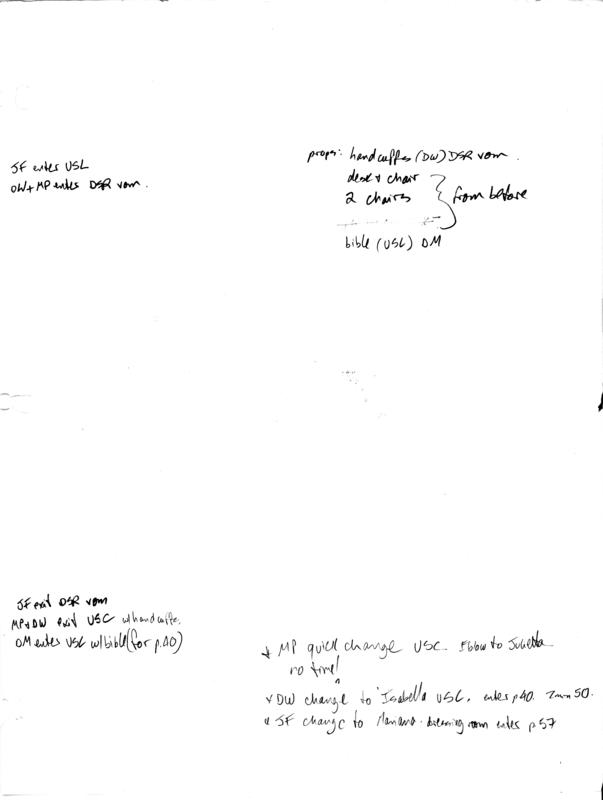 JF enters USL
DW + MP enters DSR vom.
props: handcuffes (DW) DSR vom.
desk + chair
2 chairs
from before
bible (USC) DM
JF exit DSR vom
MP + DW exit USC w/handcuffs.
DM enters USC w/bible (for p.40)
* MP quick change USC. Elbow to Julietta
no time!
* DW change to Isabella USC, enters p40. 2min 50.
* JF change to Mariana. dressing room enters p57